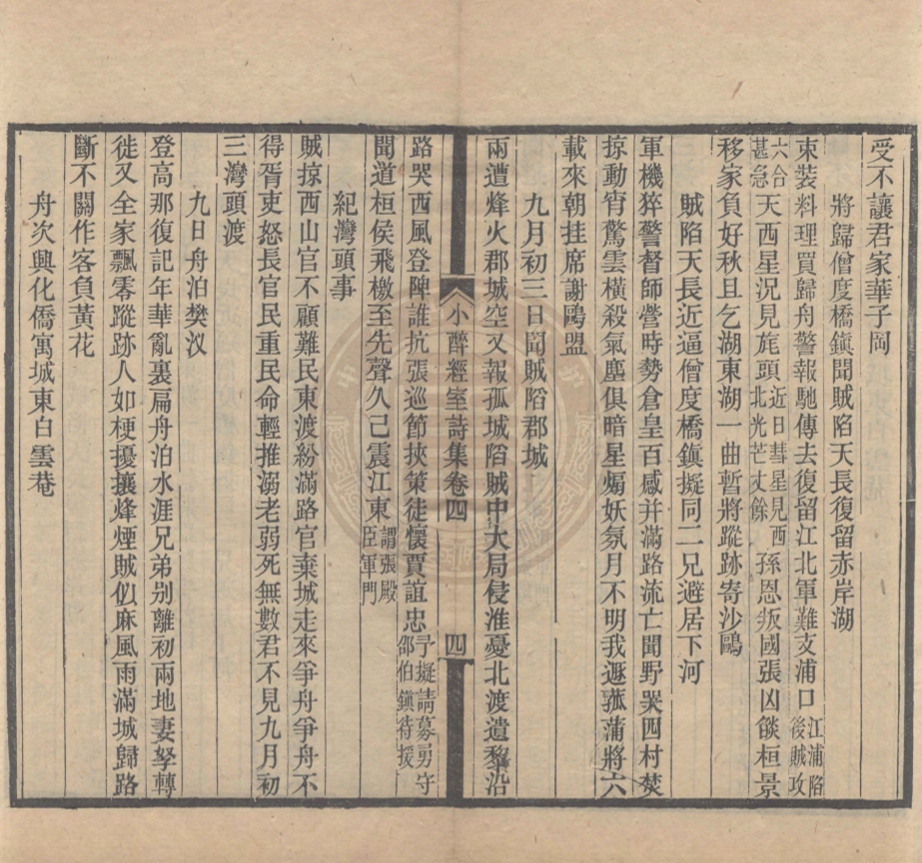 受不讓君家華子岡
將歸僧度橋鎭聞賊陷天長復留赤岸湖
束裝料理買歸舟警報馳傳去復留江北軍難支浦口江浦陷後賊攻
六合甚急天西星況見旄頭近日彗星見西北光芒丈餘孫恩叛國張凶燄桓景
移家負好秋且乞湖東湖一曲暫將蹤跡寄沙鷗
賊陷天長近逼僧度橋鎭擬同二兄避居下河
軍機猝警督師營時勢倉皇百感并滿路流亡聞野哭四村焚
掠動宵驚雲橫殺氣塵俱暗星煽妖氛月不明我遯菰蒲將六
載來朝挂席謝鷗盟
九月初三日聞賊陷郡城
兩遭烽火郡城空又報孤城陷賊中大局侵淮憂北渡遺黎沿
小醉經室詩集卷四 四
路哭西風登陴誰抗張巡節挾策徒懷賈誼忠予擬請募勇守邵伯鎭待援
聞道桓侯飛檄至先聲久已震江東謂張殿臣軍門
紀灣頭事
賊掠西山官不顧難民東渡紛滿路官棄城走來爭舟爭舟不
得胥吏怒長官民重民命輕推溺老弱死無數君不見九月初
三灣頭渡
九日舟泊樊汊
登高那復記年華亂裏扁舟泊水涯兄弟別離初兩地妻孥轉
徙又全家飄零蹤跡人如梗擾攘烽煙賊似麻風雨滿城歸路
斷不關作客負黃花
舟次興化僑寓城東白雲菴